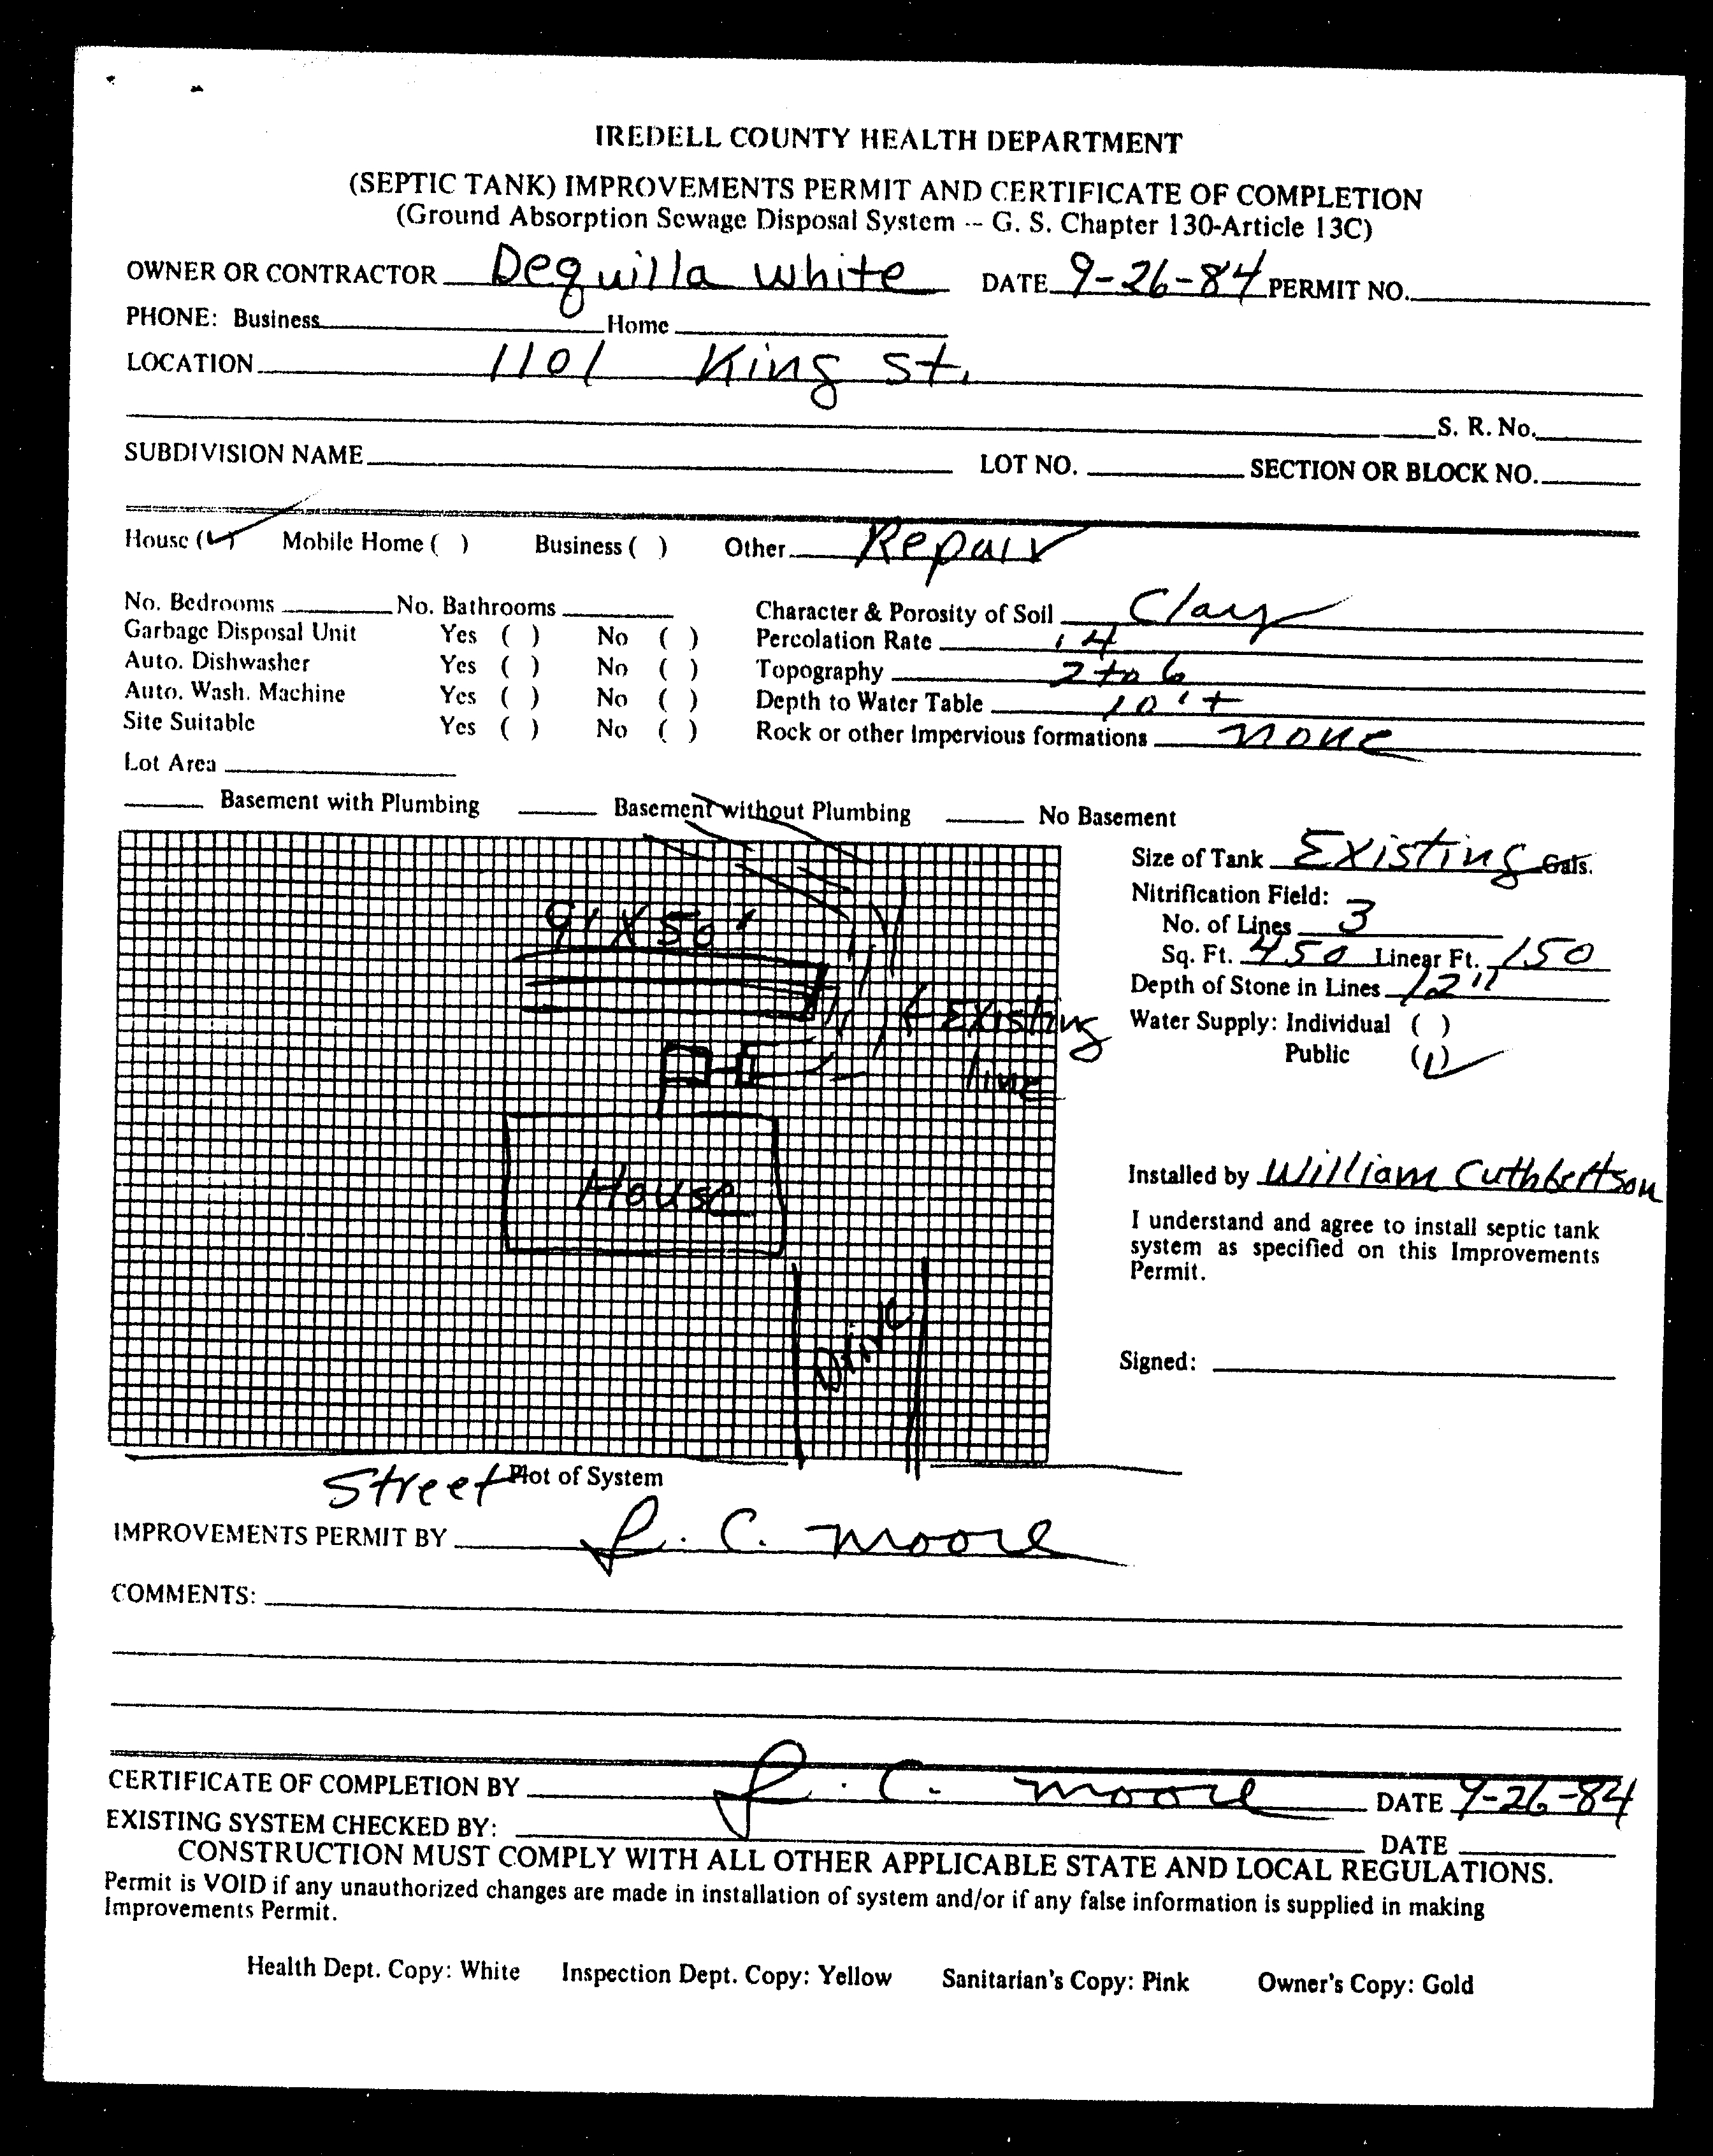 IREDELL COUNTY HEALTH DEPARTMENT
(SEPTIC TANK) IMPROVEMENTS PERMIT AND CERTIFICATE OF COMPLETION
(Ground Absorption Sewage Disposal System -- G. S. Chapter 130-Article 13C)
OWNER OR CONTRACTOR Dequilla White DATE 9-26-84 PERMIT NO.
PHONE: Business Home
LOCATION 1101 King St.
S. R. No.
SUBDIVISION NAME LOT NO. SECTION OR BLOCK NO.
House (✓) Mobile Home ( ) Business ( ) Other Repair
No. Bedrooms No. Bathrooms Character & Porosity of Soil Clay
Garbage Disposal Unit Yes ( ) No ( ) Percolation Rate .4
Auto. Dishwasher Yes ( ) No ( ) Topography 2 to 6
Auto. Wash. Machine Yes ( ) No ( ) Depth to Water Table 10'+
Site Suitable Yes ( ) No ( ) Rock or other Impervious formations none
Lot Area
Basement with Plumbing Basement without Plumbing No Basement
Size of Tank Existing Gals.
Nitrification Field:
No. of Lines 3
Sq. Ft. 450 Linear Ft. 150
Depth of Stone in Lines 12"
Water Supply: Individual ( )
Public (✓)
X 50'
← Existing
line
House
Drive
Installed by William Cuthbertson
I understand and agree to install septic tank
system as specified on this Improvements
Permit.
Signed:
Street Plot of System
IMPROVEMENTS PERMIT BY L. C. Moore
COMMENTS:
CERTIFICATE OF COMPLETION BY L. C. Moore DATE 9-26-84
EXISTING SYSTEM CHECKED BY: DATE
CONSTRUCTION MUST COMPLY WITH ALL OTHER APPLICABLE STATE AND LOCAL REGULATIONS.
Permit is VOID if any unauthorized changes are made in installation of system and/or if any false information is supplied in making
Improvements Permit.
Health Dept. Copy: White Inspection Dept. Copy: Yellow Sanitarian's Copy: Pink Owner's Copy: Gold